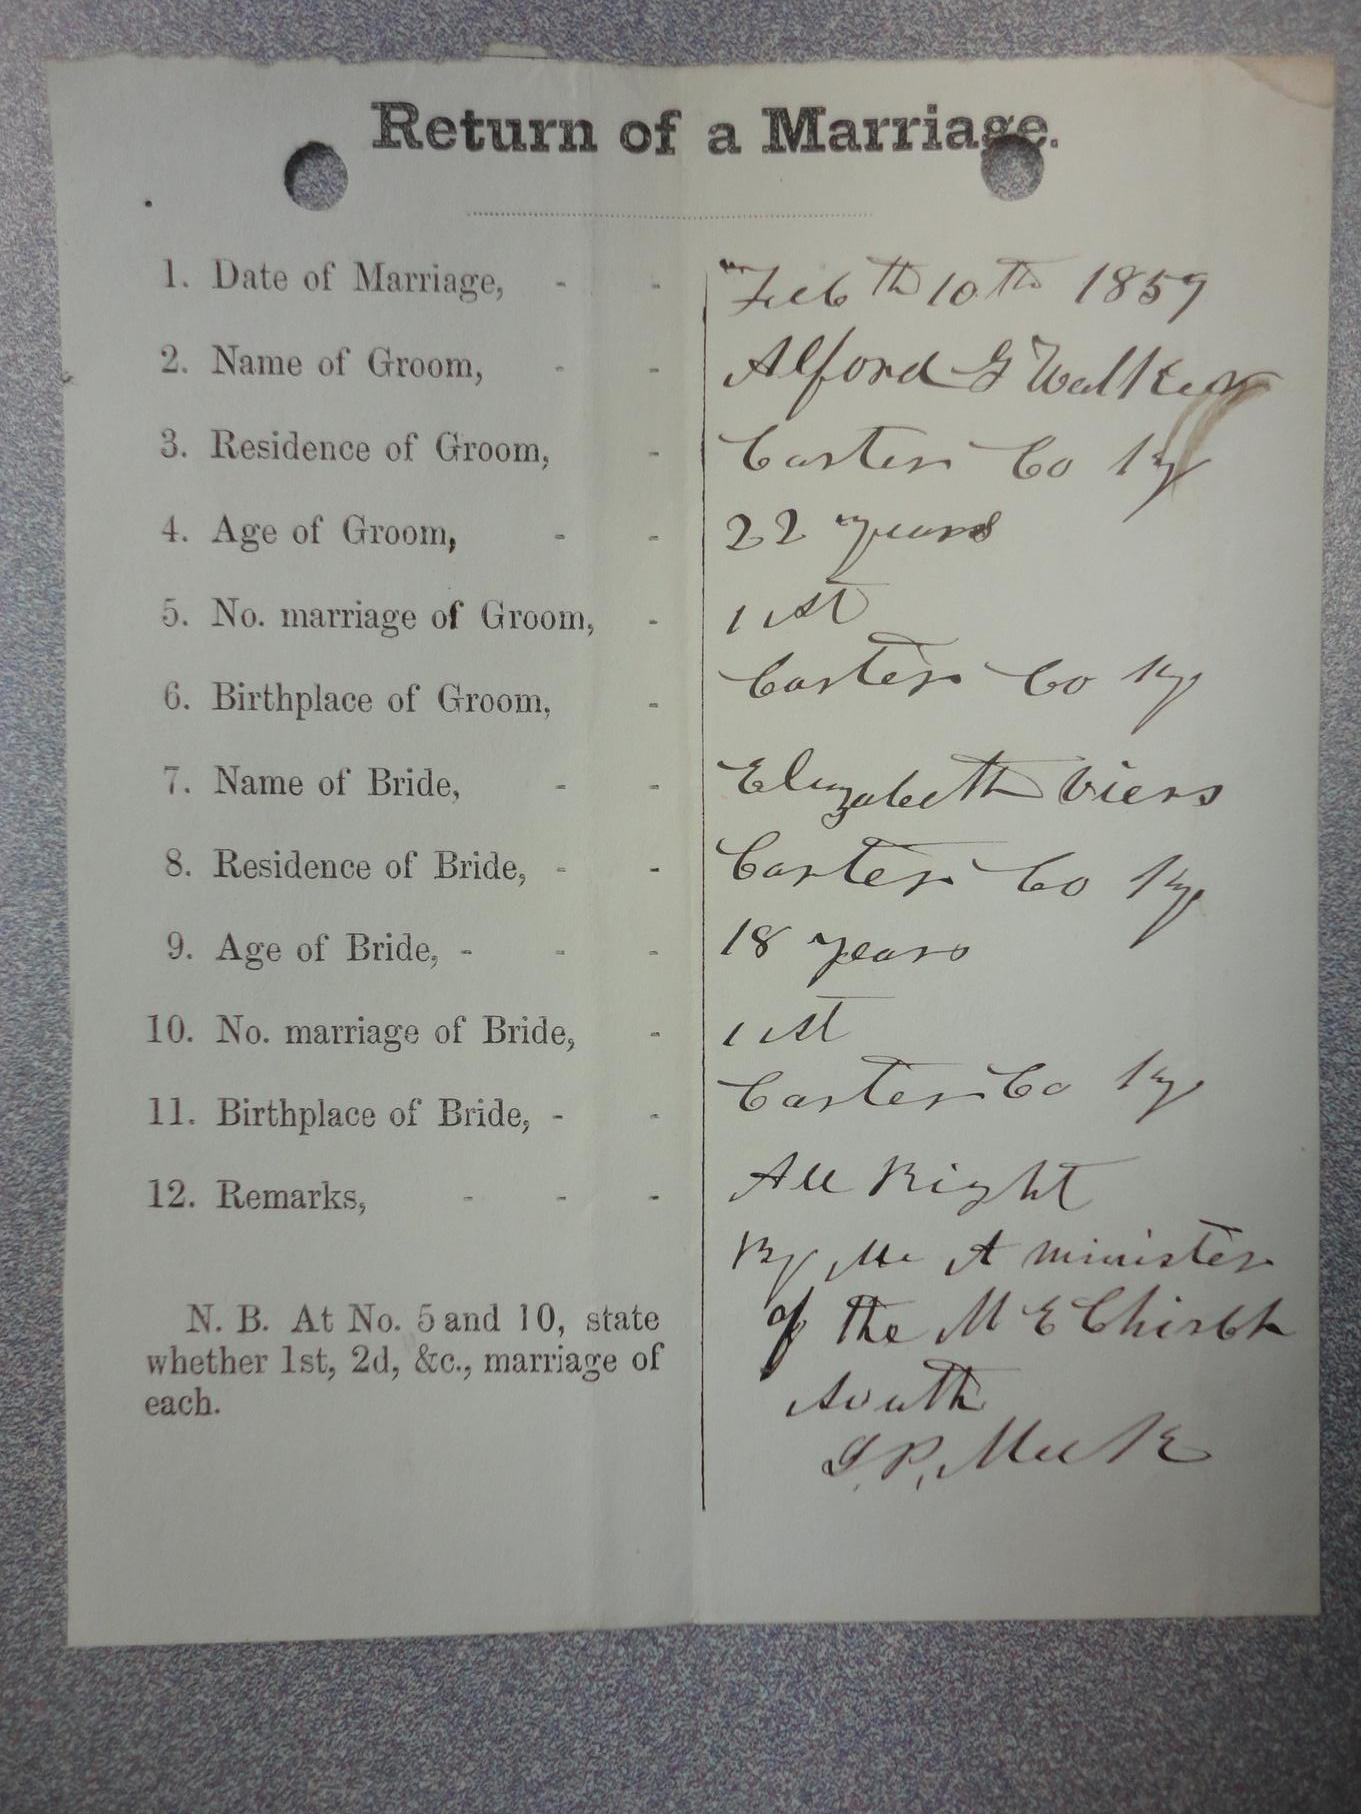 Return of a Marriage.
1. Date of Marriage, - - Feb th 10 th 1859
2. Name of Groom, - - Alford G Walker
3. Residence of Groom, - Carter Co Ky
4. Age of Groom, - - 22 years
5. No. marriage of Groom, - 1 st
6. Birthplace of Groom, - Carter Co Ky
7. Name of Bride, - - Elizabeth Viers
8. Residence of Bride, - - Carter Co Ky
9. Age of Bride, - - - 18 years
10. No. marriage of Bride, - 1 st
11. Birthplace of Bride, - - Carter Co Ky
12. Remarks, - - - All Right
By Me A minister
of the M E Chirch
south
S. P. Meek
N. B. At No. 5 and 10, state
whether 1st, 2d, &c., marriage of
each.